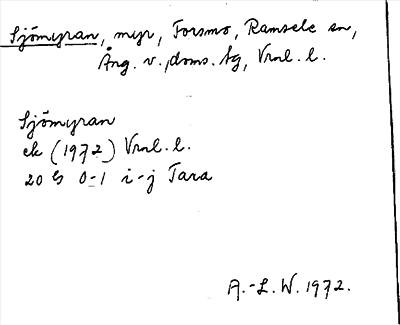 Sjömyran, myr, Forsmo, Ramsele sn,
Ång. v. doms. tg, Vrnl. l.
Sjömyran
ek (1972) Vrnl. l.
20 G 0-1 i-j Tara
A.-L. W. 1972.